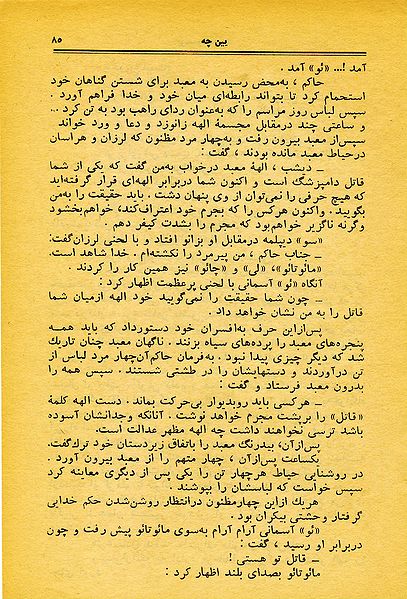 بین چه ۸۵
آمد !... «ئو» آمد .
حاکم ، به‌محض رسیدن به معبد برای شستن گناهان خود
استحمام کرد تا بتواند رابطه‌ای میان خود و خدا فراهم آورد .
سپس لباس روز مراسم را که به‌عنوان ردای راهب بود به تن کرد ...
و ساعتی چند درمقابل مجسمهٔ الهه زانوزد و دعا و ورد خواند
سپس‌از معبد بیرون رفت و به‌چهار مرد مظنون که لرزان و هراسان
درحیاط معبد مانده بودند ، گفت :
ــ دیشب ، الههٔ معبد درخواب به‌من گفت که یکی از شما
قاتل دامپزشگ است و اکنون شما دربرابر الهه‌ای قرار گرفته‌اید
که هیچ حرفی را نمی‌توان از وی پنهان دشت . باید حقیقت را به‌من
بگویید . واکنون هرکس را که بجرم خود اعتراف‌کند، خواهم‌بخشود
وگرنه ناگزیر خواهم‌بود که مجرم را بشدت کیفر دهم .
«سو» دیپلمه درمقابل او بزانو افتاد و با لحنی لرزان‌گفت:
ــ جناب حاکم ، من پیرمرد را نکشته‌ام . خدا شاهد است.
«مائوتائو»، «لی» و «چائو» نیز همین کار را کردند .
آنگاه «ئو» آسمانی با لحنی پرعظمت اظهار کرد :
ــ چون شما حقیقت را نمی‌گویید خود الهه ازمیان شما
قاتل را به من نشان خواهد داد .
پس‌ازاین حرف به‌افسران خود دستورداد که باید همـه
پنجره‌های معبد را پرده‌های سیاه بزنند . ناگهان معبد چنان تاریك
شد که دیگر چیزی پیدا نبود . به‌فرمان حاکم‌آن‌چهار مرد لباس از
تن درآوردند و دستهایشان را در طشتی شستند . سپس همه را
بدرون معبد فرستاد و گفت :
ــ هرکسی باید روبدیوار بی‌حرکت بماند . دست الهه کلمهٔ
«قاتل» را برپشت مجرم خواهد نوشت . آنانکه وجدانشان آسوده
باشد ترسی نخواهند داشت چه الهه مظهر عدالت است.
پس‌ازآن، بیدرنگ معبد را باتفاق زیردستان خود ترك‌گفت.
یکساعت پس‌ازآن ، چهار متهم را از معبد بیرون آورد .
در روشنایی حیاط هرچهار تن را یکی پس از دیگری معاینه کرد
سپس خواست که لباسشان را بپوشند .
هریك ازاین چهارمظنون درانتظار روشن‌شدن حکم خدایی
گرفتار وحشتی بیکران بود .
«ئو» آسمانی آرام آرام به‌سوی مائوتائو پیش رفت و چون
دربرابر او رسید ، گفت :
ــ قاتل تو هستی !
مائوتائو بصدای بلند اظهار کرد :